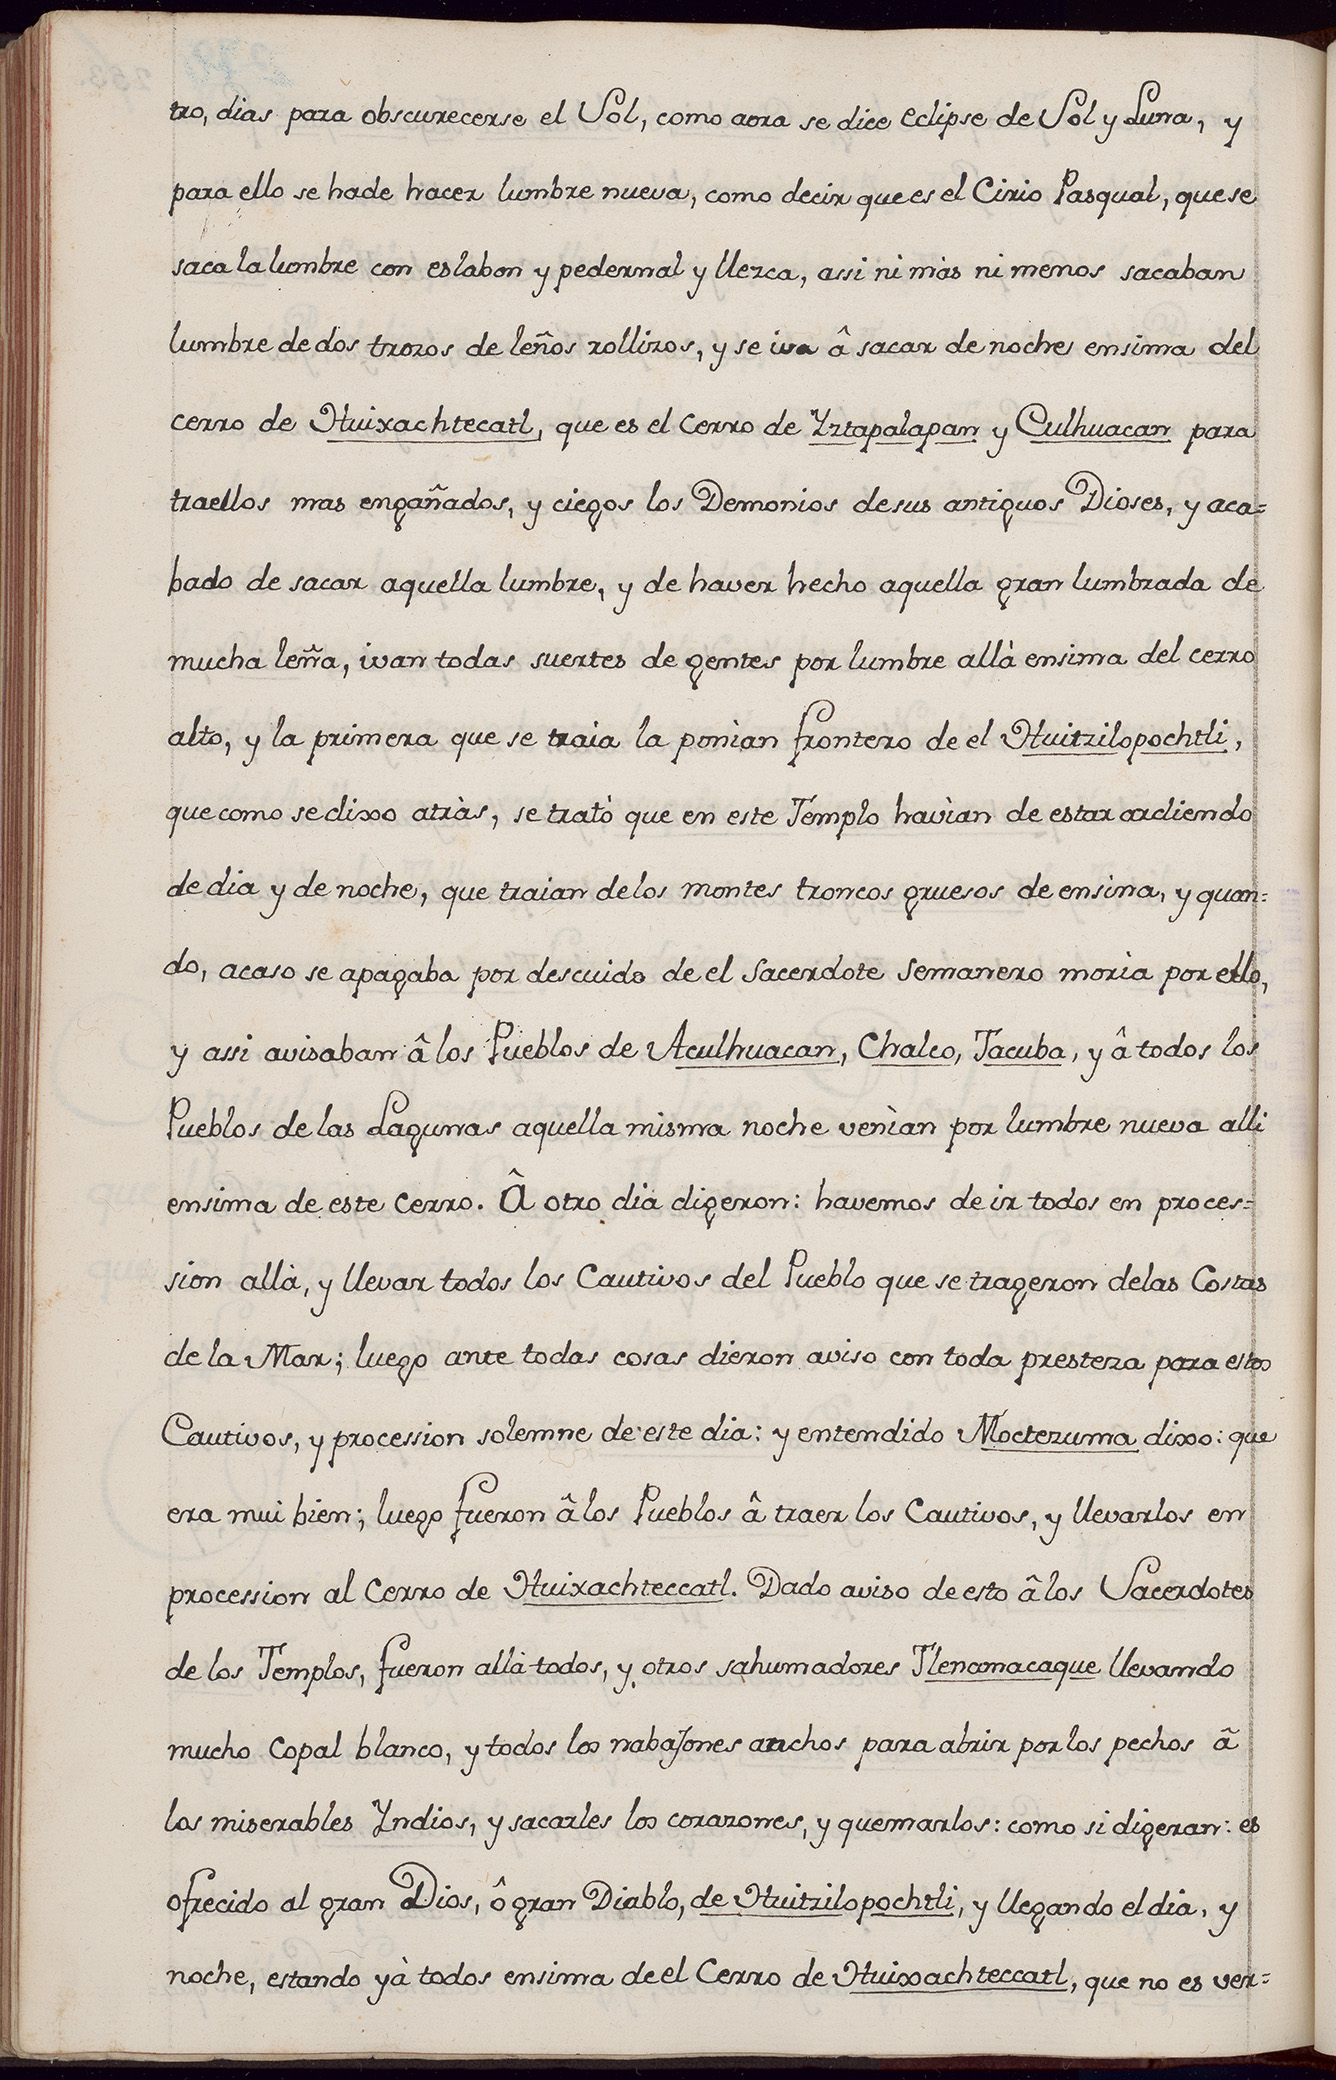 tro, dias para obscurecerse el Sol, como aora se dice eclipse de Sol y Luna, y
para ello se hade hacer lumbre nueva, como decir que es el Cirio Pasqual, que se
saca la lumbre con eslabon y pedernal y llezca, assi ni màs ni menos sacaban
lumbre de dos trozos de leños rollizos, y se iva â sacar de noche ensima del
cerro de Huixachtecatl, que es el Cerro de Yztapalapan y Culhuacan para
traellos mas engañados, y ciegos los Demonios de sus antiguos Dioses, y aca=
bado de sacar aquella lumbre, y de haver hecho aquella gran lumbrada de
mucha leña, ivan todas suertes de gentes por lumbre allà ensima del cerro
alto, y la primera que se traia la ponìan frontero de el Huitzilopochtli,
que como se dixo atràs, se tratò que en este Templo havìan de estar ardiendo
de dia y de noche, que traian delos montes troncos gruesos de ensina, y quan=
do, acaso se apagaba por descuido de el Sacerdote semanero moria por ello,
y assi avisaban â los Pueblos de Aculhuacan, Chalco, Tacuba, y â todos los
Pueblos de las Lagunas aquella misma noche venìan por lumbre nueva alli
ensima de este cerro. Â otro dia digeron: havemos de ir todos en proces=
sion allà, y llevar todos los Cautivos del Pueblo que se trageron delas Costas
de la Mar; luego ante todas cosas dieron aviso con toda presteza para estos
Cautivos, y procession solemne de este dia: y entendido Moctezuma dixo: que
era mui bien; luego fueron â los Pueblos â traer los Cautivos, y llevarlos en
procession al Cerro de Huixachteccatl. Dado aviso de esto â los Sacerdotes
de los Templos, fueron allà todos, y otros sahumadores Tlenamacaque llevando
mucho Copal blanco, y todos los nabajones anchos para abrir por los pechos ã
los miserables Yndios, y sacarles los corazones, y quemarlos: como si digeran: es
ofrecido al gran Dios, ô gran Diablo, de Huitzilopochtli, y llegando el dia, y
noche, estando yà todos ensima de el Cerro de Huixachteccatl, que no es ver=